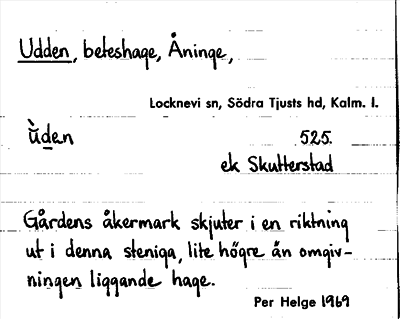 Udden, beteshage, Åninge,
Locknevi sn, Södra Tjusts hd, Kalm. l.
ùden 525.
ek Skutterstad
Gårdens åkermark skjuter i en riktning
ut i denna steniga, lite högre än omgiv-
ningen liggande hage.
Per Helge 1969